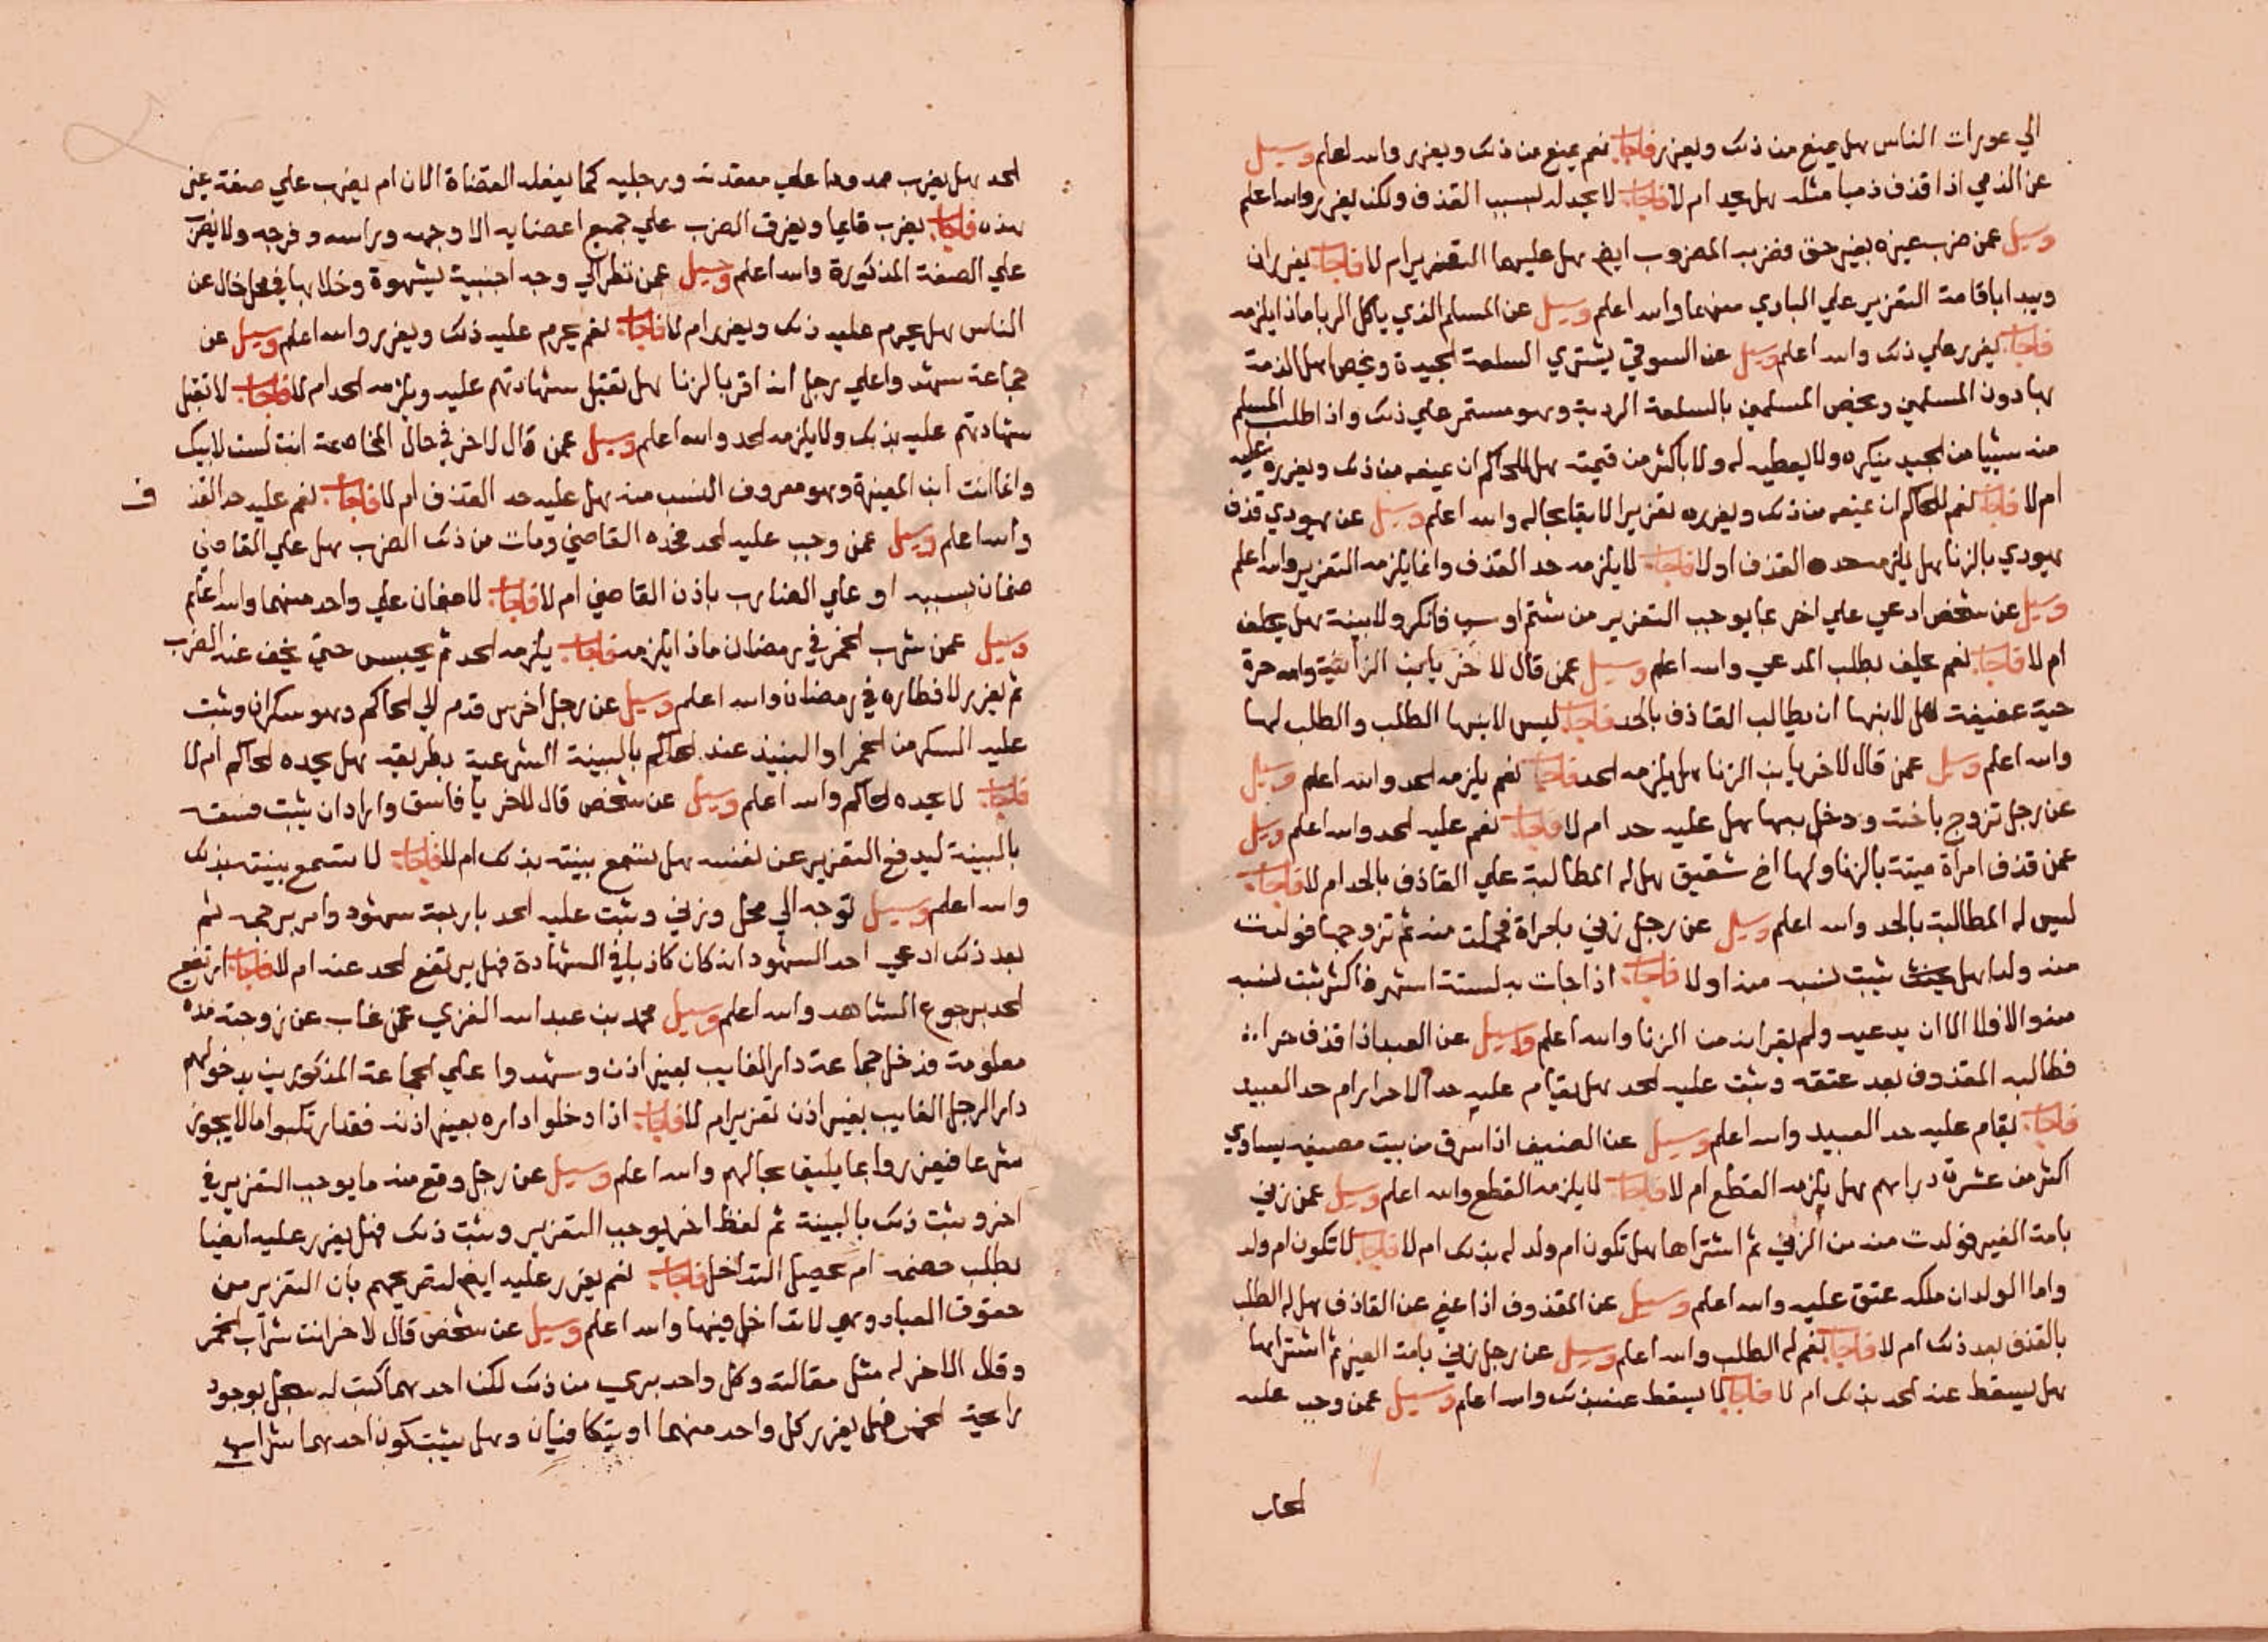 الي عورات الناس هل يمنع من ذلك ويعزر فاجاب نعم يمنع من ذلك ويعزر والله اعلم وسيل
عن الذمي اذا قذف ذميا مثله هل يحد ام لا فاجاب لا يحد له بسبب القذف ولكنه يعزر والله اعلم
وسيل عمن ضرب غيره بغير حق فضربه المضروب ايض هل عليهما التعزير ام لا فاجاب يعزران
ويبدا باقامة التعزير علي البادي منهما والله اعلم وسيل عن المسلم الذي ياكل الربا ماذا يلزمه
فاجاب يعزر علي ذلك والله اعلم وسيل عن السوقي يشتري السلعة الجيدة ويخص اهل الذمة
بها دون المسلمين ويخص المسلمين بالسلعة الردية وهو مستمر علي ذلك واذا طلب المسلم
منه شييا من الجيد ينكره ولا يعطيه له ولا باكثر من قيمته هل للحاكم ان يمنعه من ذلك ويعزره عليه
ام لا فاجاب نعم للحاكم ان يمنعه من ذلك ويعزره تعزيرا لايقا بحاله والله اعلم وسيل عن يهودي قذف
يهودي بالزنا هل يلزمه حد القذف او لا فاجاب لا يلزمه حد القذف وانما يلزمه التعزير والله اعلم
وسيل عن شخص ادعي علي اخر بما يوجب التعزير من شتم او سب فانكر ولا بينة هل يحلف
ام لا فاجاب نعم يحلف بطلب المدعي والله اعلم وسيل عمن قال لاخر يا ابن الزانية وامه حرة
حية عفيفة هل لابنها ان يطالب القاذف بالحد فاجاب ليس لابنها الطلب والطلب لها
والله اعلم وسيل عمن قال لاخر يا ابن الزنا هل يلزمه الحد فاجاب نعم يلزمه الحد والله اعلم وسيل
عن رجل تزوج باخته ودخل بها هل عليه حد ام لا فاجاب نعم عليه الحد والله اعلم وسيل
عمن قذف امراة ميتة بالزنا ولها اخ شقيق هل له المطالبة علي القاذف بالحد ام لا فاجاب
ليس له المطالبة بالحد والله اعلم وسيل عن رجل زني بامراة فحملت منه ثم تزوجها فولدت
منه ولدا هل يثبت نسبه منه او لا فاجاب اذا جات به لستة اشهر فاكثر ثبت نسبه
منه والا فلا الا ان يدعيه ولم يقر انه من الزنا والله اعلم وسيل عن العبد اذا قذف حرا
فطالبه المقذوف بعد عتقه وثبت عليه الحد هل يقام عليه حد الاحرار ام حد العبيد
فاجاب يقام عليه حد العبيد والله اعلم وسيل عن الضيف اذا سرق من بيت مضيفه يساوي
اكثر من عشرة دراهم هل يلزمه القطع ام لا فاجاب لا يلزمه القطع والله اعلم وسيل عمن زني
بامة الغير فولدت منه من الزني ثم اشتراها هل تكون ام ولد له بذلك ام لا فاجاب لا تكون ام ولد
واما الولد ان ملكه عتق عليه والله اعلم وسيل عن المقذوف اذا عفي عن القاذف هل له الطلب
بالقذف بعد ذلك ام لا فاجاب نعم له الطلب والله اعلم وسيل عن رجل زني بامة الغير ثم اشتراها
هل يسقط عنه الحد بذلك ام لا فاجاب لا يسقط عنه بذلك والله اعلم وسيل عمن وجب عليه
الحد هل يضرب ممدودا علي مقعدته ورجليه كما يفعله القضاة الان ام يضرب علي صفة غير
هذه فاجاب يضرب قايما ويفرق الضرب علي جميع اعضايه الا وجهه وراسه وفرجه ولا يضرب
علي الصفة المذكورة والله اعلم وسيل عمن نظر الي وجه اجنبية بشهوة وخلا بها في محل خال عن
الناس هل يحرم عليه ذلك ويعزر ام لا فاجاب نعم يحرم عليه ذلك ويعزر والله اعلم وسيل عن
جماعة شهدوا علي رجل انه اقر بالزنا هل تقبل شهادتهم عليه ويلزمه الحد ام لا فاجاب لا تقبل
شهادتهم عليه بذلك ولا يلزمه الحد والله اعلم وسيل عمن قال لاخر في حال المخاصمة انت لست لابيك
وانما انت ابن وهو معروف النسب منه هل عليه حد القذف ام لا فاجاب نعم عليه حد القذ ف
والله اعلم وسيل عمن وجب عليه الحد فحده القاضي ومات من ذلك الضرب هل علي القاضي
ضمان بسببه او علي الضارب باذن القاضي ام لا فاجاب لا ضمان علي واحد منهما والله اعلم
وسيل عمن شرب الخمر في رمضان ماذا يلزمه فاجاب يلزمه الحد ثم يحبس حتي يخف عنه الضرب
ثم يعزر لافطاره في رمضان والله اعلم وسيل عن رجل اخرس قدم الي الحاكم وهو سكران وثبت
عليه السكر من الخمر او النبيذ عند الحاكم بالبينة الشرعية بطريقه هل يحده الحاكم ام لا
فاجاب لا يحده الحاكم والله اعلم وسيل عن شخص قال للاخر يا فاسق واراد ان يثبت فسقه
بالبينة ليدفع التعزير عن نفسه هل تسمع بينته بذلك ام لا فاجاب لا تسمع بينته بذلك
والله اعلم وسيل توجه الي محل وزني وثبت عليه الحد باربعة شهود وامر برجمه ثم
بعد ذلك ادعي احد الشهود انه كان كاذبا في الشهادة فهل يرتفع الحد عنه ام لا فاجاب ارتفع
الحد برجوع الشاهد والله اعلم وسيل محمد بن عبد الله الغزي عمن غاب عن زوجته مدة
معلومة فدخل جماعة دار الغايب بغير اذن وشهدوا علي الجماعة المذكورين بدخولهم
دار الرجل الغايب بغير اذن تعزير ام لا فاجاب اذا دخلوا داره بغير اذنه فقد ارتكبوا ما لا يجوز
شرعا فيعزروا بما يليق بحالهم والله اعلم وسيل عن رجل وقع منه ما يوجب التعزير في
اخر وثبت ذلك بالبينة ثم لفظ اخر يوجب التعزير وثبت ذلك فهل يعزر عليه ايضا
بطلب خصمه ام يحصل التداخل فاجاب نعم يعزر عليه ايض لتصريحهم بان التعزير من
حقوق العباد وهي لا تداخل فيها والله اعلم وسيل عن شخص قال لاخر انت شراب الخمر
وقال الاخر له مثل مقالته وكل واحد بري من ذلك لكن احدهما كتب له سجل بوجود
رايحة الخمر فهل يعزر كل واحد منهما او يتكافيان وهل يثبت كون احدهما شراب